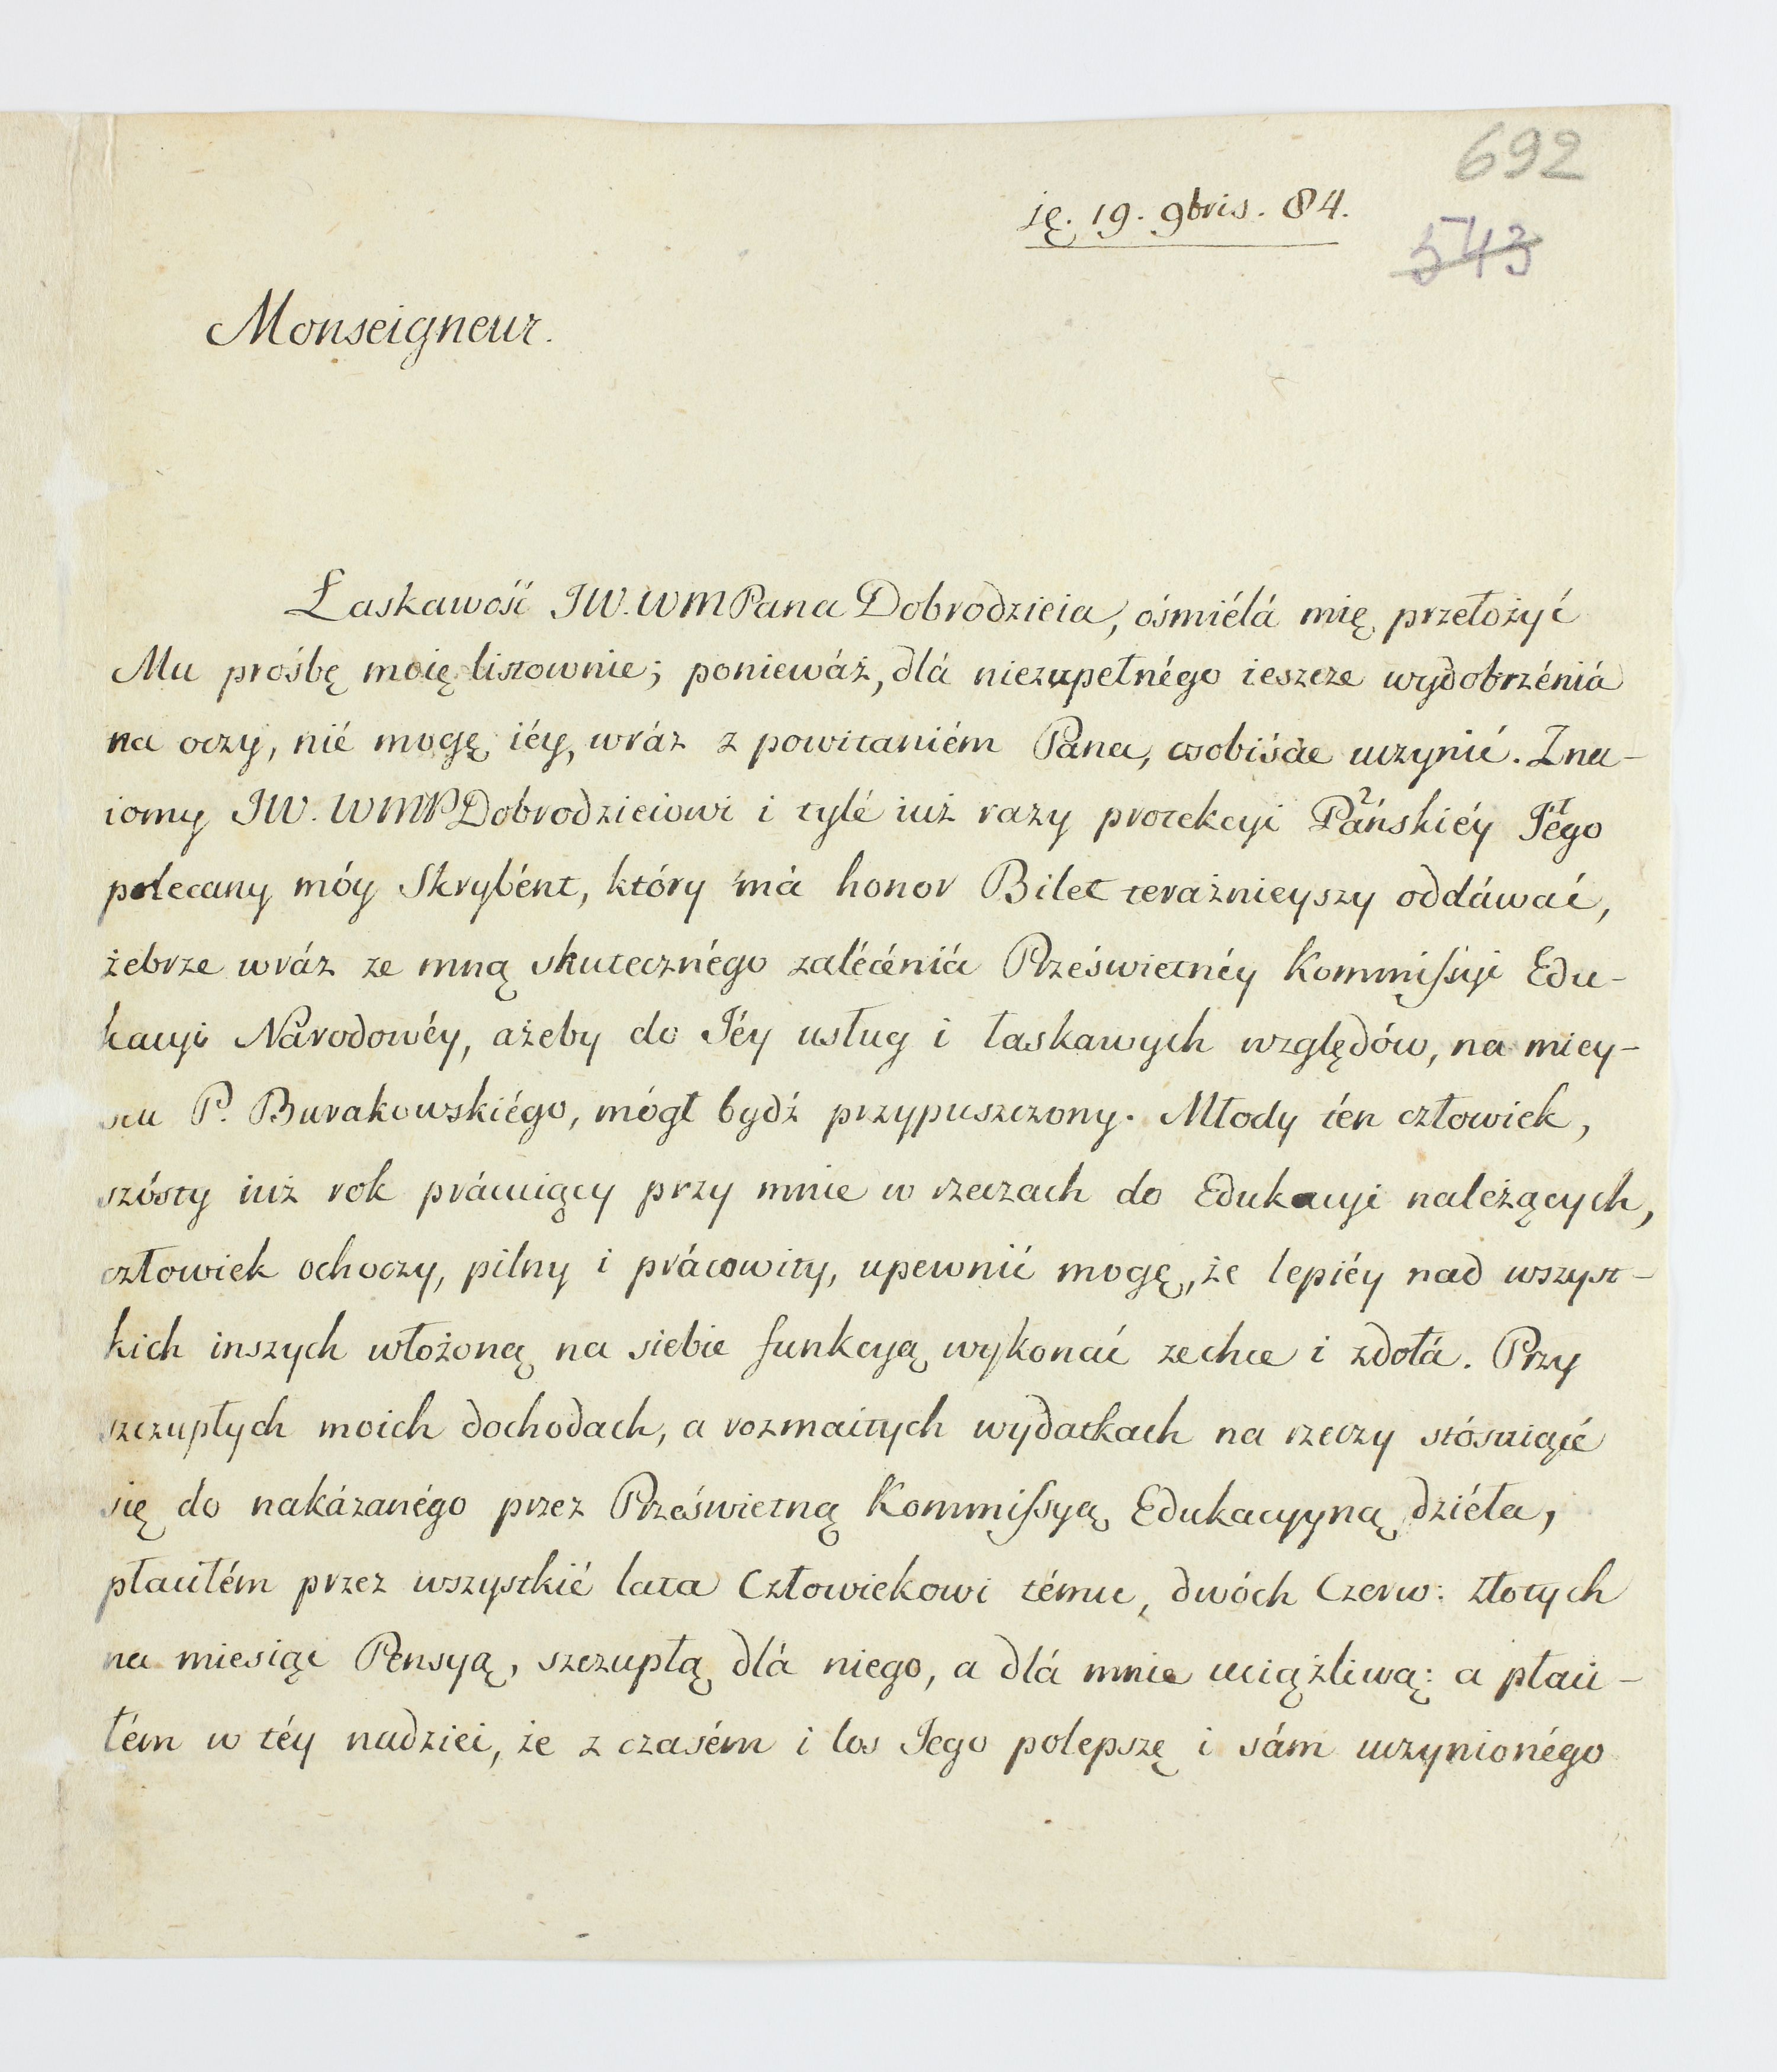 692
ię. 19. 9bris. 84.
543
Monseigneur.
Łaskawość JW. WMPana Dobrodzieia, ośmiélá mię przełożyć
Mu prośbę moię listownie; poniewáż, dlá niezupełnégo ieszcze wydobrzéniá
na oczy, nié mogę iéy, wráz z powitaniém Pana, osobiście uczynić. Zna-
iomy JW. WMPDobrodzieiowi i tylé iuż razy protekcyi Pańskiéy Jego
polecany móy Skrybént, który má honor Bilet teraźnieyszy oddáwać,
żebrze wráz ze mną skutecznégo zalécéniá Prześwietnéy Kommissyi Edu-
kacyi Národowéy, ażeby do Jéy usług i łaskawych względów, na miey-
scu P. Burakowskiégo, mógł bydź przypuszczony. Młody tén człowiek,
szósty iuż rok prácuiący przy mnie w rzeczach do Edukacyi należących,
człowiek ochoczy, pilny i prácowity, upewnić mogę, że lepiéy nad wszyst-
kich inszych włożoną na siebie funkcyą wykonać zechce i zdołá. Przy
szczupłych moich dochodach, a rozmaitych wydatkach na rzeczy stósuiącé
się do nakázanégo przez Prześwietną Kommissyą Edukacyyną dziéła,
płaciłém przez wszystkié lata Człowiekowi tému, dwóch Czerw: Złotych
na miesiąc Pensyą, szczupłą dlá niego, a dlá mnie uciążliwą: a płaci-
łém w téy nadziei, że z czasém i los Jego polepszę i sám uczynionégo